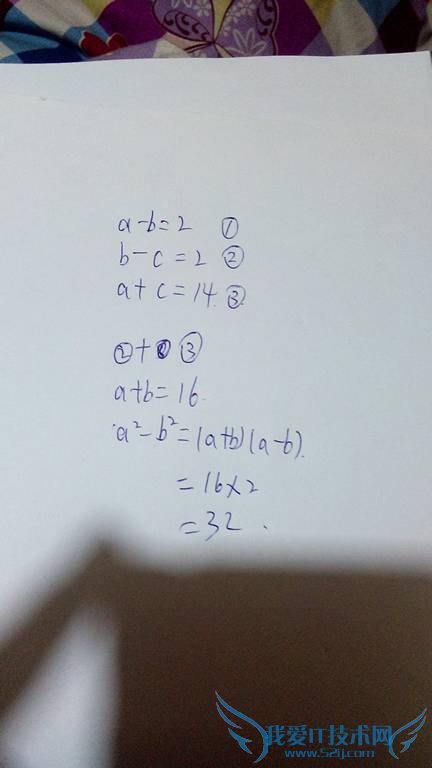 a-b=2 ①
b-c=2 ②
a+c=14. ③
②+③
a+b=16.
a²-b²=(a+b)(a-b).
=16×2
=32.
我爱IT技术网
www.52ij.com